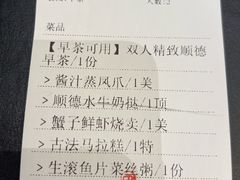 菜品
【早茶可用】双人精致顺德
早茶/1份
> 酱汁蒸凤爪/1美
> 顺德水牛奶挞/1顶
> 蟹子鲜虾烧卖/1美
> 古法马拉糕/1特
> 生滚鱼片菜丝粥/1份